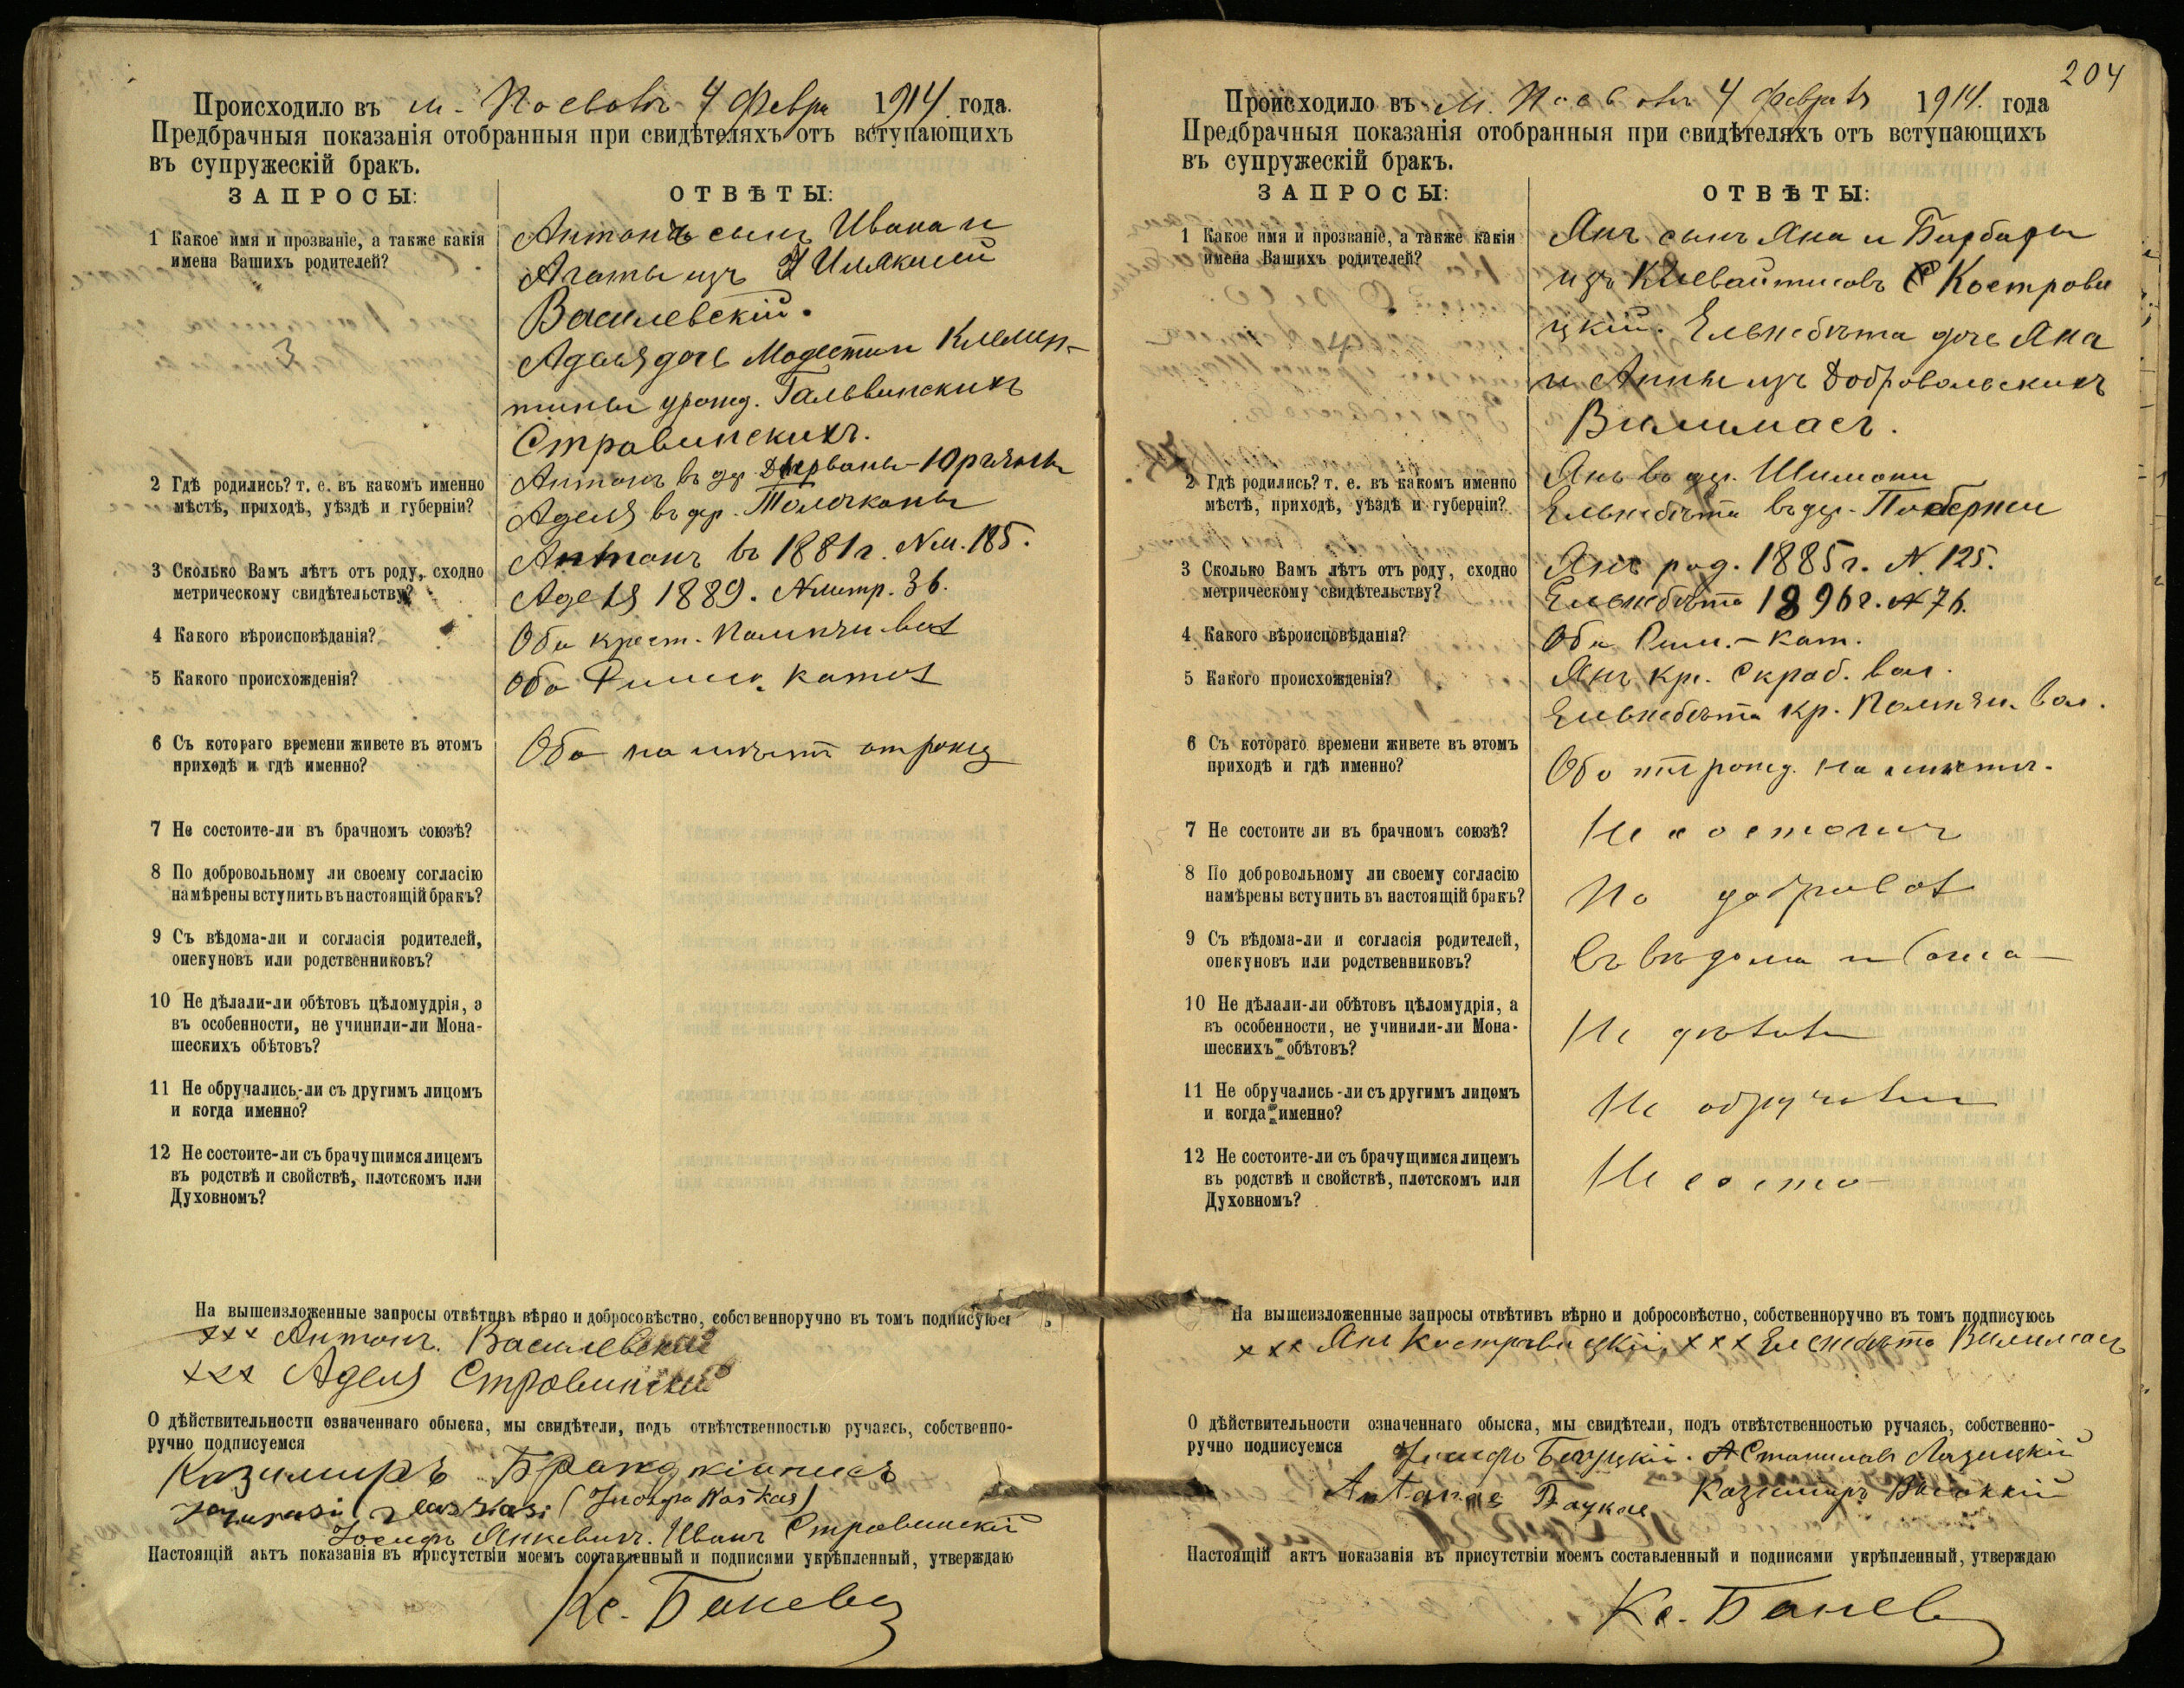 Происходило въ м. Посволь 4 Февр 1914 года.
Предбрачныя показанія отобранныя при свидѣтеляхъ отъ вступающихъ
въ супружескій бракъ.
ЗАПРОСЫ:
ОТВѢТЫ:
1 Какое имя и прозваніе, а также какія
имена Вашихъ родителей?
Антонъ сынъ Ивана и
Агаты изъ
Василевскій.
Аделя дочь Модеста и Клемен-
тины урожд. Гальвинскихъ
Стравинскихъ.
2 Гдѣ родились? т. е. въ какомъ именно
мѣстѣ, приходѣ, уѣздѣ и губерніи?
Антонъ въ дер.
Аделя въ дер. Толочканы
3 Сколько Вамъ лѣтъ отъ роду, сходно
метрическому свидѣтельству?
Антонъ въ 1881 г. №м. 185.
Аделя 1889. №метр. 36.
4 Какого вѣроисповѣданія?
Оба крест. вол
5 Какого происхожденія?
Оба Римск. катол
6 Съ котораго времени живете въ этомъ
приходѣ и гдѣ именно?
Оба на мѣстѣ отрожд
7 Не состоите-ли въ брачномъ союзѣ?
8 По добровольному ли своему согласію
намѣрены вступить въ настоящій бракъ?
9 Съ вѣдома-ли и согласія родителей,
опекуновъ или родственниковъ?
10 Не дѣлали-ли обѣтовъ цѣломудрія, а
въ особенности, не учинили-ли Мона-
шескихъ обѣтовъ?
11 Не обручались-ли съ другимъ лицомъ
и когда именно?
12 Не состоите-ли съ брачущимся лицемъ
въ родствѣ и свойствѣ, плотскомъ или
Духовномъ?
На вышеизложенные запросы отвѣтивъ вѣрно и добросовѣстно, собственноручно въ томъ подписуюсь
xxx Антонъ Василевскій
xxx Аделя Стравинская
О дѣйствительности означеннаго обыска, мы свидѣтели, подъ отвѣтственностью ручаясь, собственно-
ручно подписуемся
Казимиръ
Іосифъ Янкевичъ. Иванъ Стравинскій
Настоящій актъ показанія въ присутствіи моемъ составленный и подписями укрѣпленный, утверждаю
Кс. Баневъ
204
Происходило въ м. Посволь 4 Февраль 1914. года
Предбрачныя показанія отобранныя при свидѣтеляхъ отъ вступающихъ
въ супружескій бракъ.
ЗАПРОСЫ:
ОТВѢТЫ:
1 Какое имя и прозваніе, а также какія
имена Вашихъ родителей?
Янъ сынъ Яна и Барбары
изъ Костро­ви
цкій. Елизабѣта дочь Яна
и Анны изъ Добровольскихъ
Вилимасъ.
2 Гдѣ родились? т. е. въ какомъ именно
мѣстѣ, приходѣ, уѣздѣ и губерніи?
Янъ въ дер. Шимони
Елизабѣта въ дер.
3 Сколько Вамъ лѣтъ отъ роду, сходно
метрическому свидѣтельству?
Янъ род. 1885 г. N. 125.
Елизабѣта 1896 г. N 76.
4 Какого вѣроисповѣданія?
Оба Рим.-кат.
5 Какого происхожденія?
Янъ кр. Скраб. вол.
Елизабѣта кр. вол.
6 Съ котораго времени живете въ этомъ
приходѣ и гдѣ именно?
Оба отрожд. на мѣстѣ.
7 Не состоите ли въ брачномъ союзѣ?
Не состоимъ
8 По добровольному ли своему согласію
намѣрены вступить въ настоящій бракъ?
По добровол
9 Съ вѣдома-ли и согласія родителей,
опекуновъ или родственниковъ?
Съ вѣдома и согла
10 Не дѣлали-ли обѣтовъ цѣломудрія, а
въ особенности, не учинили-ли Мона-
шескихъ обѣтовъ?
Не дѣлали
11 Не обручались-ли съ другимъ лицомъ
и когда именно?
Не обручались
12 Не состоите-ли съ брачущимся лицемъ
въ родствѣ и свойствѣ, плотскомъ или
Духовномъ?
Не состо
На вышеизложенные запросы отвѣтивъ вѣрно и добросовѣстно, собственноручно въ томъ подписуюсь
xxx Янъ Костровицкій, xxx Елизабѣта Вилимасъ
О дѣйствительности означеннаго обыска, мы свидѣтели, подъ отвѣтственностью ручаясь, собственно-
ручно подписуемся
Казимиръ
Настоящій актъ показанія въ присутствіи моемъ составленный и подписями укрѣпленный, утверждаю
Кс. Баневъ